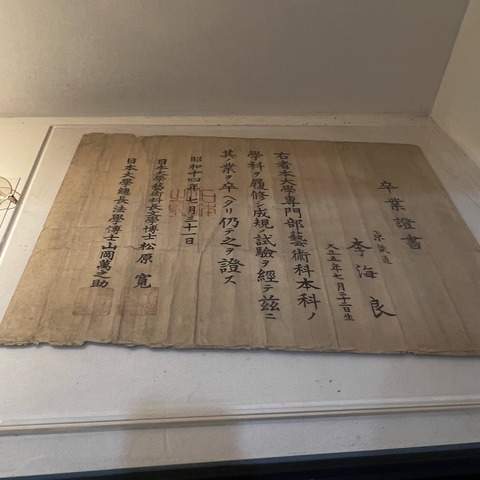 卒業證書
京畿道
李海良
大正五年七月二十二日生
右者本大學專門部藝術科本科ノ
學科ヲ履修シ成規ノ試驗ヲ經テ茲ニ
其ノ業ヲ卒ヘタリ仍テ之ヲ證ス
昭和十四年七月三十一日
日本大學藝術科長文學博士松原寬
日本大學總長法學博士山岡萬之助